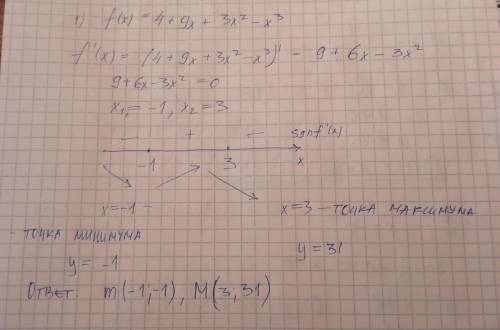 1) f(x) = 4+9x+3x²-x³
f'(x) = (4+9x+3x²-x³)' = 9+6x-3x²
9+6x-3x² = 0
x₁ = -1, x₂ = 3
- + - sgnf'(x)
-1 3 x
x=-1 - x=3 - точка максимума
- точка минимума
y = -1 y = 31
Ответ: m(-1;-1), M(3;31)